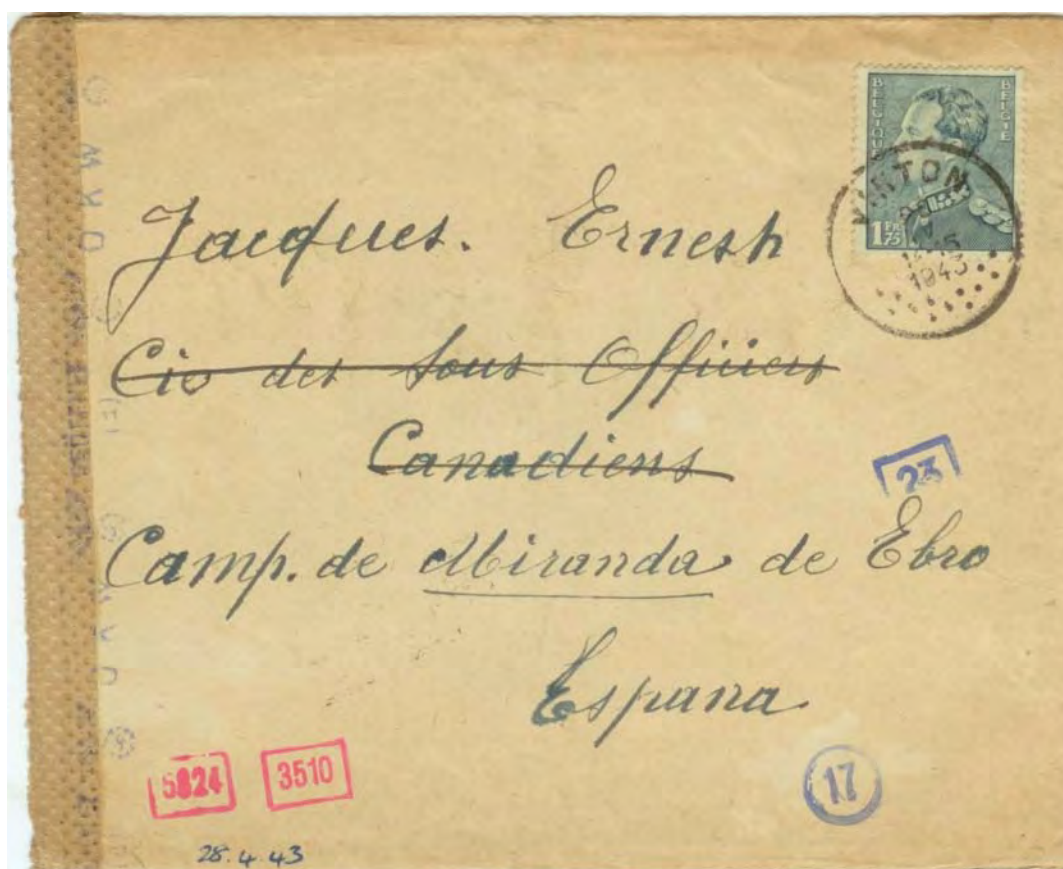 BELGIQUE BELGIE
1 FR 75
VIRTON
1943
Jacques. Ernest
Cie des Sous Officiers
Canadiens
23
Camp. de Miranda de Ebro
Espana
5824 3510
17
28.4.43